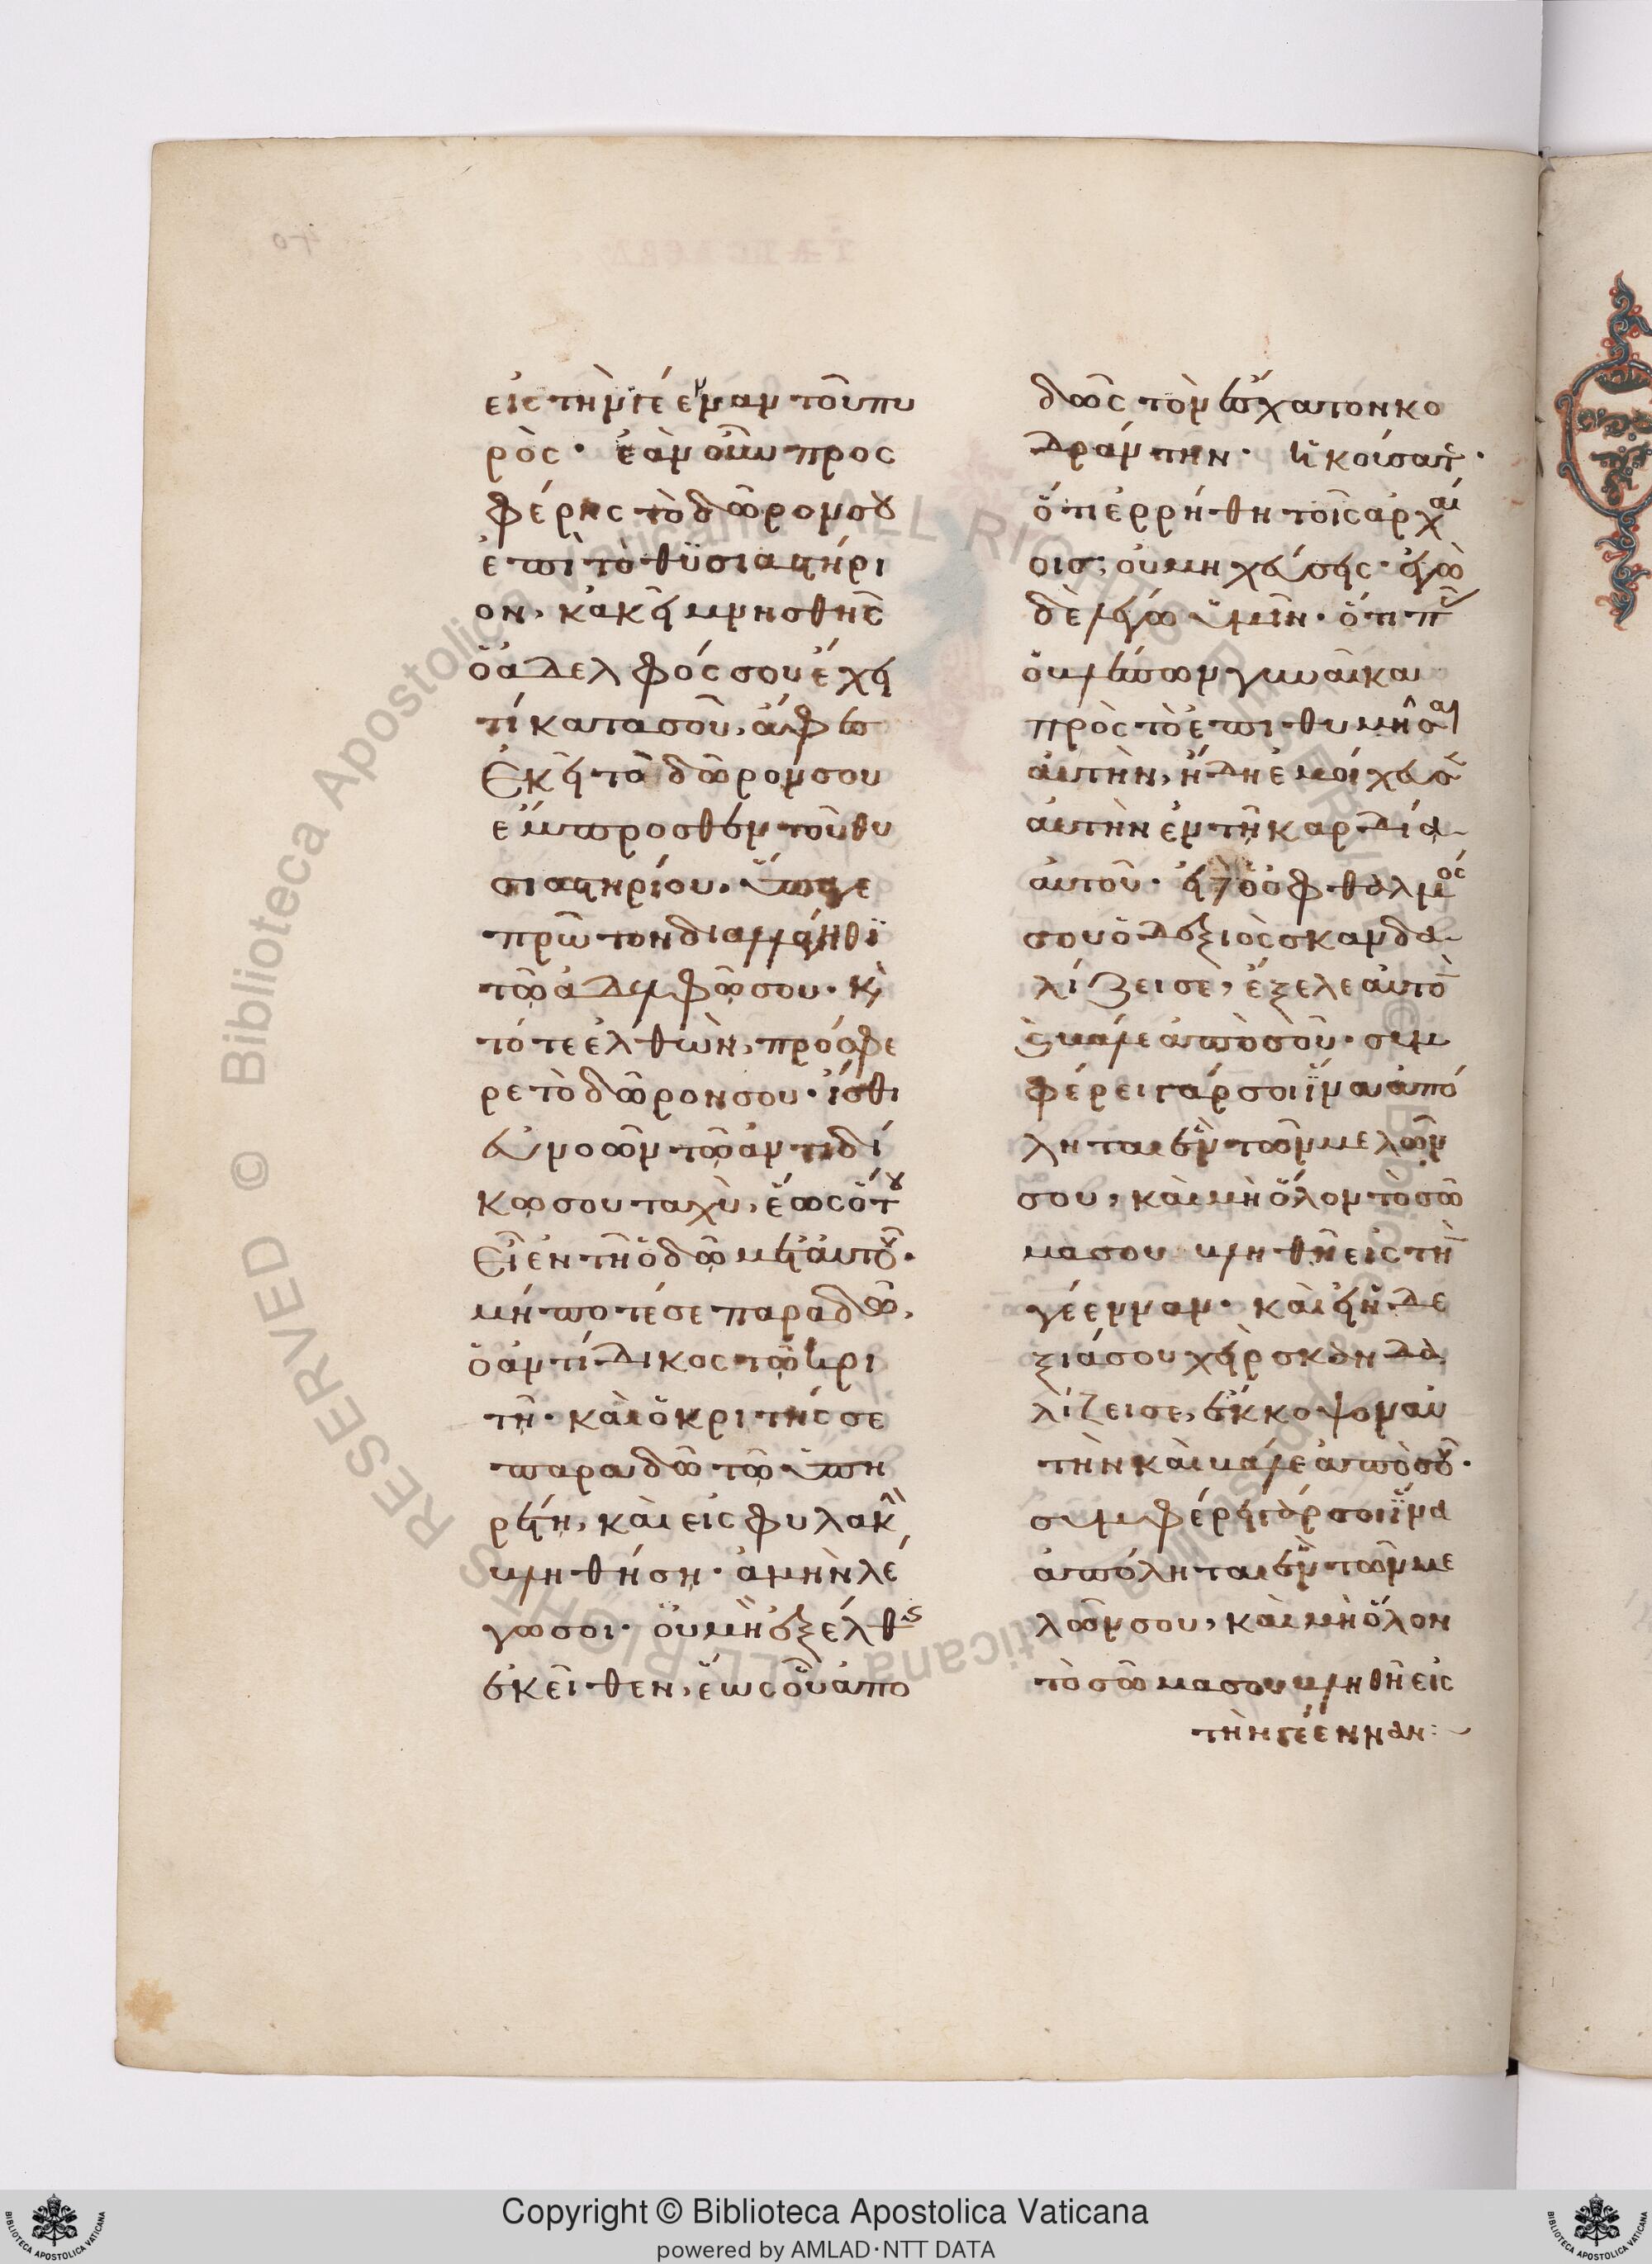 εἰς τὴν γέενναν τοῦ πυ
ρὸς· ἐὰν οὖν προς
φέρης τὸ δῶρον σου
ἐπὶ τὸ θυσιαστήρι
ον, κἀκεῖ μνησθῆς
ὅ ἀδελφός σου ἔχει
τί κατα σοῦ, ἄφες
ἐκεῖ τὸ δῶρον σου
ἔμπροσθεν τοῦ θυ
σιαστηρίου. ὕπαγε
πρῶτον διαλλάγηθι
τῶ ἀδελφῶ σου· κὶ
τότε ἐλθὼν, πρόσφε
ρε τὸ δῶρον σου· ἴσθι
εὐνοῶν τῶ ἀντιδί
κω σου ταχὺ, ἕως ὅτου
εἶ ἐν τῆ ὁδῶ μετ αὐτοῦ·
μήποτέ σε παραδῶ,
ὁ ἀντίδικος τῶ κρι
τῆ· καὶ ὁ κριτής σε
παραδῶ τῶ ὑπη
ρέτη, καὶ εἰς φυλακὴ
βληθήση· ἀμὴν λέ
γω σοι· οὐ μὴ ἐξέλθης
ἐκεῖθεν, ἕως οὗ ἀπο
δῶς τὸν ἔσχατον κο
δράντην· ἠκούσατε·
ὅτι ἐρρήθη τοῖς ἀρχαί
οις, οὐ μη χεύσης· ἐγὼ
δὲ λέγω ὑμῖν· ὅτι π
ὁ βλέπων γυναῖκαι
πρὸς τὸ ἐπιθυμῆσαι
αὐτὴν, ἤδη ἐμοίχευσε
αὐτὴν ἐν τῆ καρδία
αὐτοῦ· εἰ δὲ ὁ ὀφθαλμός
σου ὁ δεξιὸς σκανδα
λίζει σὲ, ἔξελε αὐτὸ
καὶ βάλε ἀπὸ σοῦ· συμ
φέρει γάρ σοι ἵνα ἀπό
ληται ἓν τῶν μελῶν
σου, καὶ μὴ ὅλον τὸ σῶ
μα σου βληθῆ εἰς τὴ
γέενναν· καὶ εἰ ἡ δε
ξιά σου χεὶρ σκανδα
λίζει σε, ἔκκοψον αὐ
τὴν καὶ βάλε ἀπὸ σοῦ·
συμφέρει γάρ σοι ἵνα
ἀπόληται ἓν τῶν με
λῶν σου, καὶ μὴ ὅλον
τὸ σῶμα σου βληθῆ εἰς
τὴν γέενναν:
Copyright © Biblioteca Apostolica Vaticana
powered by AMLAD·NTT DATA